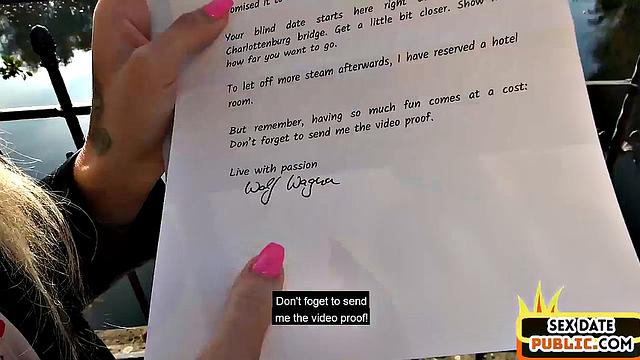 omised it to
Your blind date starts here right
Charlottenburg bridge. Get a little bit closer. Show
how far you want to go.
To let off more steam afterwards, I have reserved a hotel
room.
But remember, having so much fun comes at a cost:
Don't forget to send me the video proof.
Live with passion
Wolf Wagner
Don't foget to send
me the video proof!
SEX DATE
PUBLIC.COM